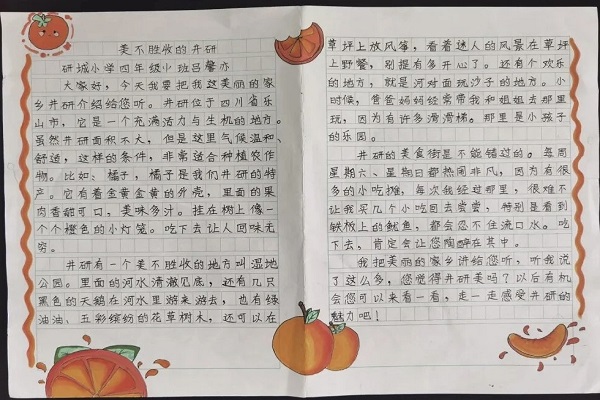 美不胜收的井研
研城小学四年级小班吕馨亦
大家好，今天我要把我这美丽的家
乡井研介绍给您听。井研位于四川省乐
山市，它是一个充满活力与生机的地方。
虽然井研面积不大，但是这里气候温和、
舒适，这样的条件，非常适合种植农作
物。比如、橘子，橘子是我们井研的特
产。它有着金黄金黄的外壳，里面的果
肉香甜可口，美味多汁。挂在树上像一
个个橙色的小灯笼。吃下去让人回味无
穷。
井研有一个美不胜收的地方叫湿地
公园。里面的河水清澈见底，还有几只
黑色的天鹅在河水里游来游去，也有绿
油油、五彩缤纷的花草树木，还可以在
草坪上放风筝，看看迷人的风景在草坪
上野餐，别提有多开心了。还有个欢乐
的地方，就是河对面玩沙子的地方。小
时候，爸爸妈妈经常带我和姐姐去那里
玩，因为有许多滑滑梯。那里是小孩子
的乐园。
井研的美食街是不能错过的。每周
星期六、星期日都热闹非凡，因为有很
多的小吃摊，每次我经过那里，很难不
让我买几个小吃回去尝尝，特别是看到
铁板上的鱿鱼，都会忍不住流口水。吃
下去，肯定会让您陶醉在其中。
我把美丽的家乡讲给您听，听我说
了这么多，您觉得井研美吗？以后有机
会您可以来看一看，走一走感受井研的
魅力吧！